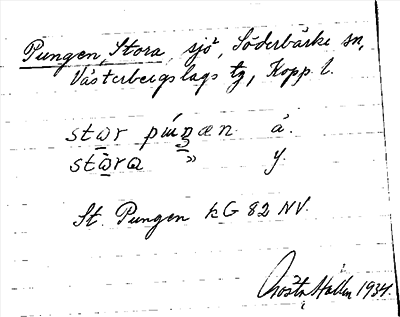 Pungen, Stora, sjö, Söderbärke sn,
Västerbergslags tg, Kopp. l.
stɷr puŋæn. ä.
stɷra » y.
St. Pungen kG 82 NV.
Gösta Hallén 1934.